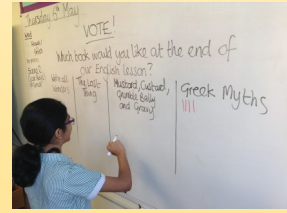 Thursday 6th May
VOTE!
Which book would you like at the end of
our English lesson?
The Last
Mustard, Custard,
Grumble Belly
and Gravy
Greek Myths